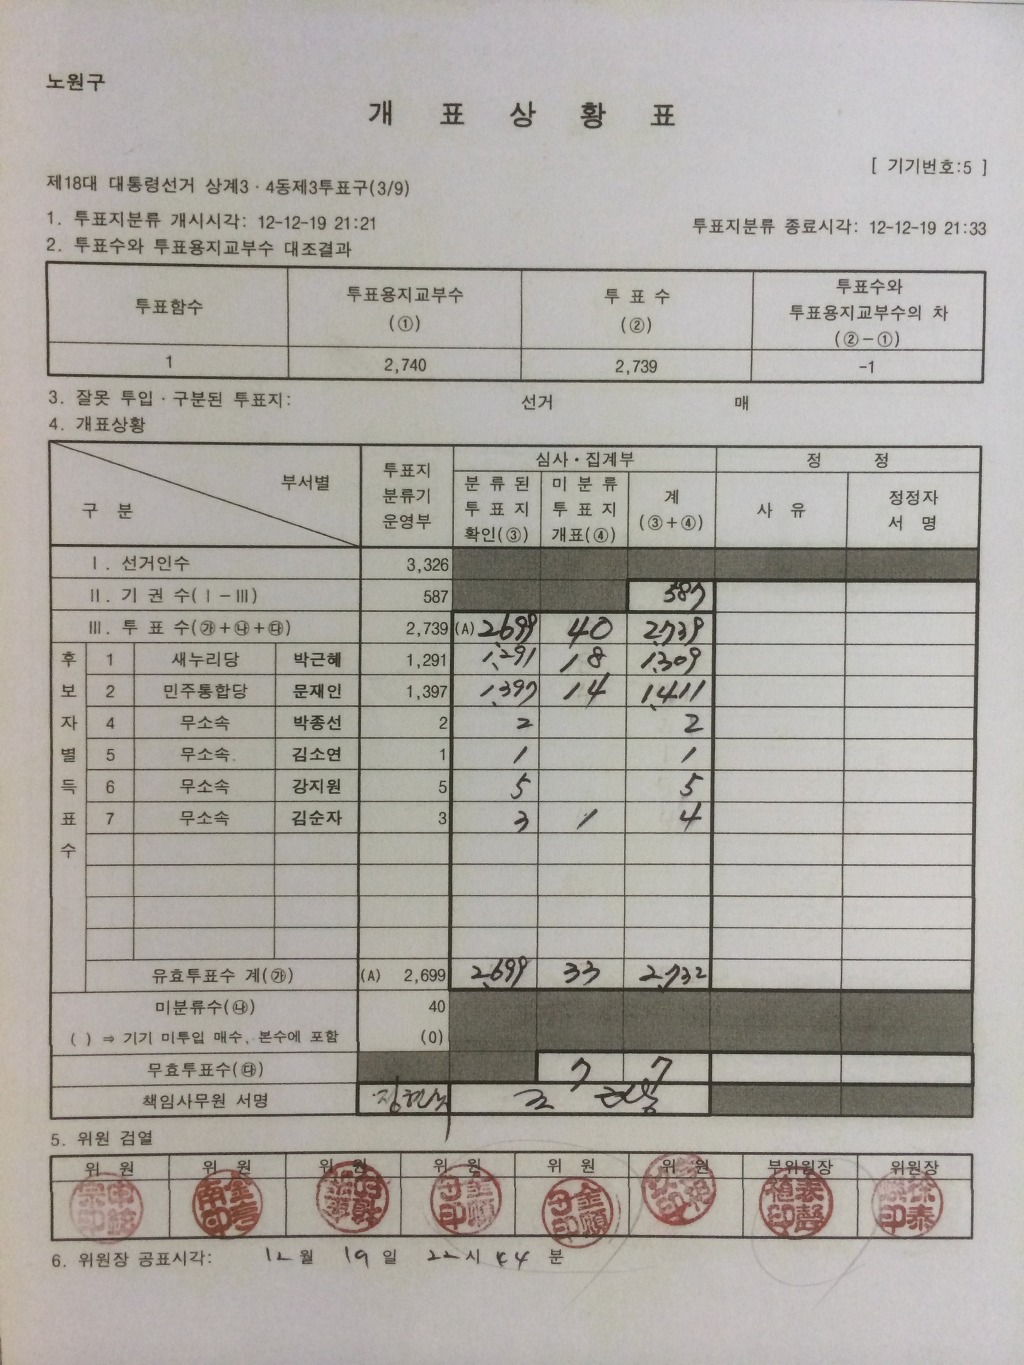 노원구
개 표 상 황 표
[ 기기번호:5 ]
제18대 대통령선거 상계3·4동제3투표구(3/9)
1. 투표지분류 개시시각: 12-12-19 21:21 투표지분류 종료시각: 12-12-19 21:33
2. 투표수와 투표용지교부수 대조결과
투표함수 투표용지교부수 (①) 투 표 수 (②) 투표수와 투표용지교부수의 차 (②-①)
1 2,740 2,739 -1
3. 잘못 투입·구분된 투표지: 선거 매
4. 개표상황
구 분 부서별 투표지 분류기 운영부 심사·집계부 정 정
분 류 된 투 표 지 확인(③) 미 분 류 투 표 지 개표(④) 계 (③+④) 사 유 정정자 서 명
Ⅰ. 선거인수 3,326
Ⅱ. 기 권 수(Ⅰ-Ⅲ) 587 587
Ⅲ. 투 표 수(㉮+㉯+㉰) 2,739 (A) 2,699 40 2,739
후보자별득표수
1 새누리당 박근혜 1,291 1,291 18 1,309
2 민주통합당 문재인 1,397 1,397 14 1,411
4 무소속 박종선 2 2 2
5 무소속 김소연 1 1 1
6 무소속 강지원 5 5 5
7 무소속 김순자 3 3 1 4
유효투표수 계(㉮) (A) 2,699 2,699 33 2,732
미분류수(㉯) 40
( ) ⇒ 기기 미투입 매수, 본수에 포함 (0)
무효투표수(㉰) 7 7
책임사무원 서명
5. 위원 검열
위 원 위 원 위 원 위 원 위 원 위 원 부위원장 위원장
6. 위원장 공표시각: 12 월 19 일 22 시 44 분